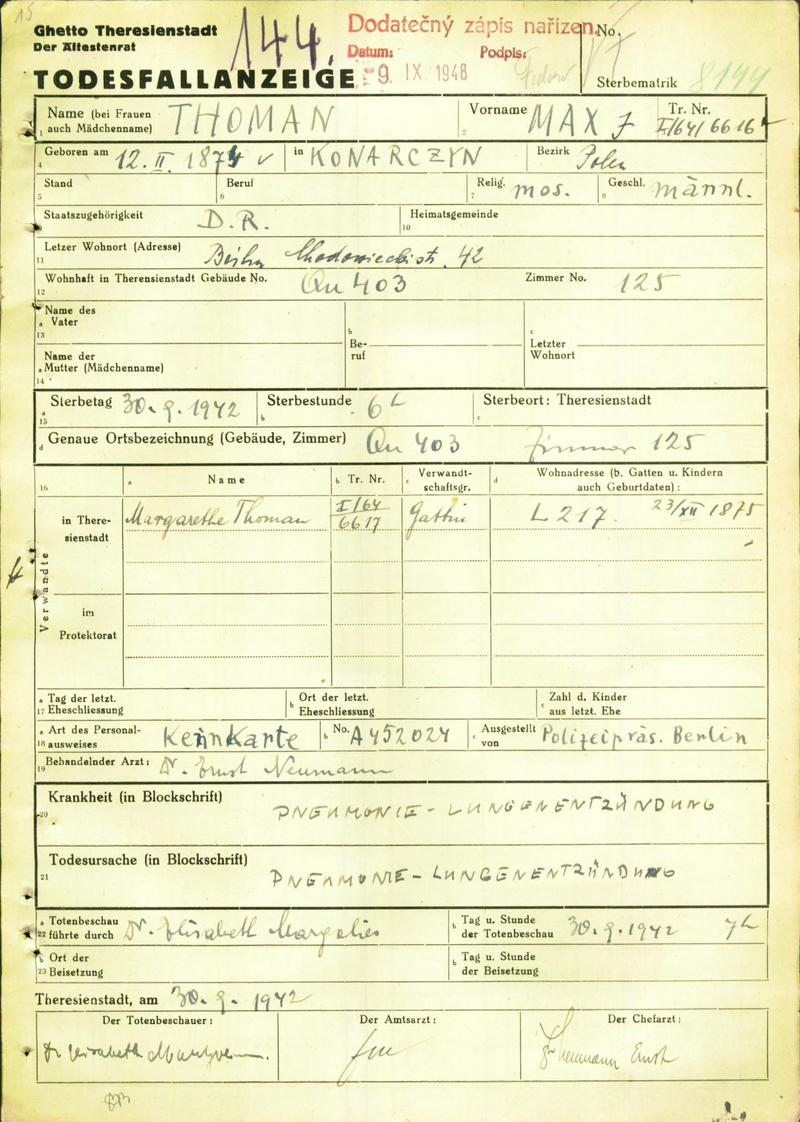 15
Ghetto Theresienstadt
Der Ältestenrat
TODESFALLANZEIGE
144.
Dodatečný zápis nařízen.
Datum: 9. IX 1948 Podpis:
No.
Sterbematrik
Name (bei Frauen auch Mädchenname) THOMAN Vorname MAX Tr. Nr. I/64/6616
1 2
Geboren am 12. II. 1874 in KONARCZYN Bezirk Polen
4
Stand Beruf Relig. mos. Geschl. männl.
5 6 7 8
Staatszugehörigkeit D.R. Heimatsgemeinde
10
Letzer Wohnort (Adresse) Berlin Chodowieckistr. 42
11
Wohnhaft in Therensienstadt Gebäude No. Qu 403 Zimmer No. 125
12
a Name des Vater
13
b Beruf
c Letzter Wohnort
a Name der Mutter (Mädchenname)
14
Sterbetag 30. 9. 1942 Sterbestunde 6 h Sterbeort: Theresienstadt
a 15 b c
d Genaue Ortsbezeichnung (Gebäude, Zimmer) Qu 403 Zimmer 125
16 a Name b Tr. Nr. c Verwandtschaftsgr. d Wohnadresse (b. Gatten u. Kindern auch Geburtdaten):
Verwandte
in Theresienstadt Margarethe Thoman I/64 6617 Gattin L 217. 23/XII 1875
im Protektorat
a Tag der letzt. Eheschliessung b Ort der letzt. Eheschliessung c Zahl d. Kinder aus letzt. Ehe
17
a Art des Personalausweises Kennkarte b No. A452024 c Ausgestellt von Polizeipräs. Berlin
18
Behandelnder Arzt: Dr. Ernst Neumann
19
Krankheit (in Blockschrift) PNEUMONIE - LUNGENENTZÜNDUNG
20
Todesursache (in Blockschrift) PNEUMONIE - LUNGENENTZÜNDUNG
21
a Totenbeschau führte durch Dr. Elisabeth Margolies b Tag u. Stunde der Totenbeschau 30. 9. 1942 7h
22
b Ort der Beisetzung b Tag u. Stunde der Beisetzung
23
Theresienstadt, am 30. 9. 1942
Der Totenbeschauer: Der Amtsarzt: Der Chefarzt: